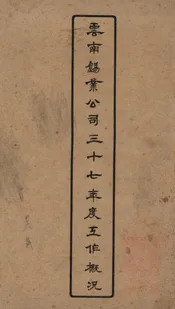 雲南錫業公司三十七年度工作概况